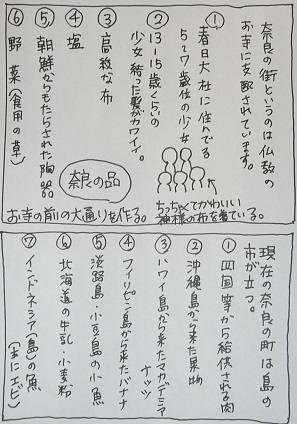 奈良の街というのは仏教の
お寺に支配されています。
①春日大社に住んでる
5～7歳位の少女
②13～15歳くらいの
少女 結った髪がカワイイ。
③高級な布
④塩
⑤朝鮮からもたらされた陶器
⑥野菜(食用の草)
奈良の品
ちっちゃくてかわいい
神様の布を着ている。
お寺の前の大通りを作る。
現在の奈良の町は島の
市が立つ。
①四国等から給供される肉
②沖縄島から来た果物
③ハワイ島から来たマカデミア
ナッツ
④フィリピン島から来たバナナ
⑤淡路島・小豆島の小魚
⑥北海道の牛乳・小麦粉
⑦インドネシア(島)の魚
(主にエビ)